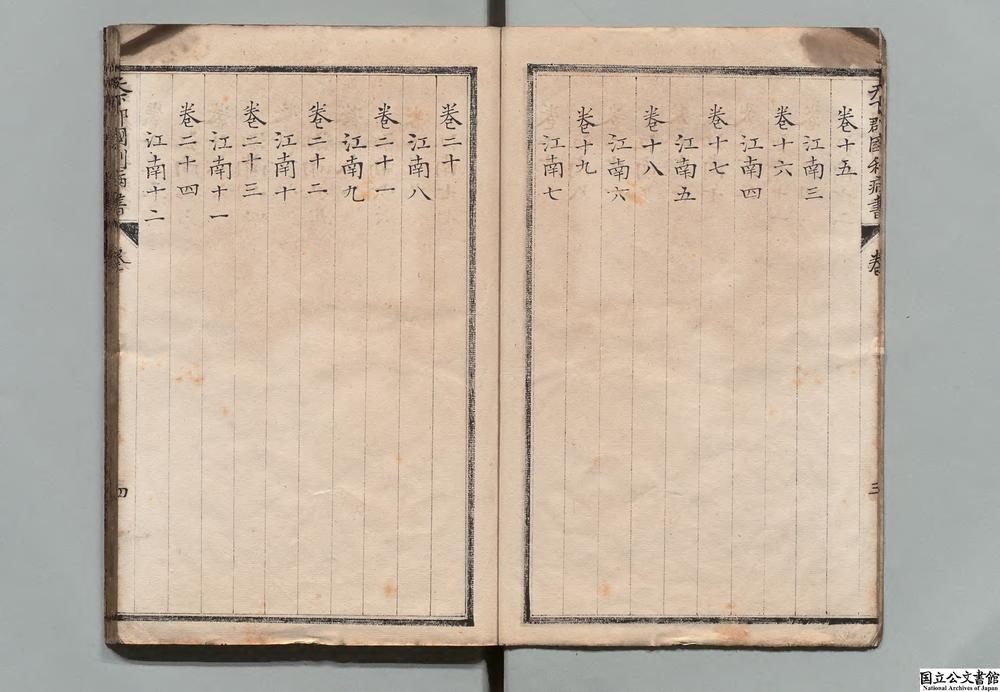 天下郡國利病書
卷
三
卷十五
江南三
卷十六
江南四
卷十七
江南五
卷十八
江南六
卷十九
江南七
卷二十
江南八
卷二十一
江南九
卷二十二
江南十
卷二十三
江南十一
卷二十四
江南十二
天下郡國利病書
卷
四
国立公文書館
National Archives of Japan